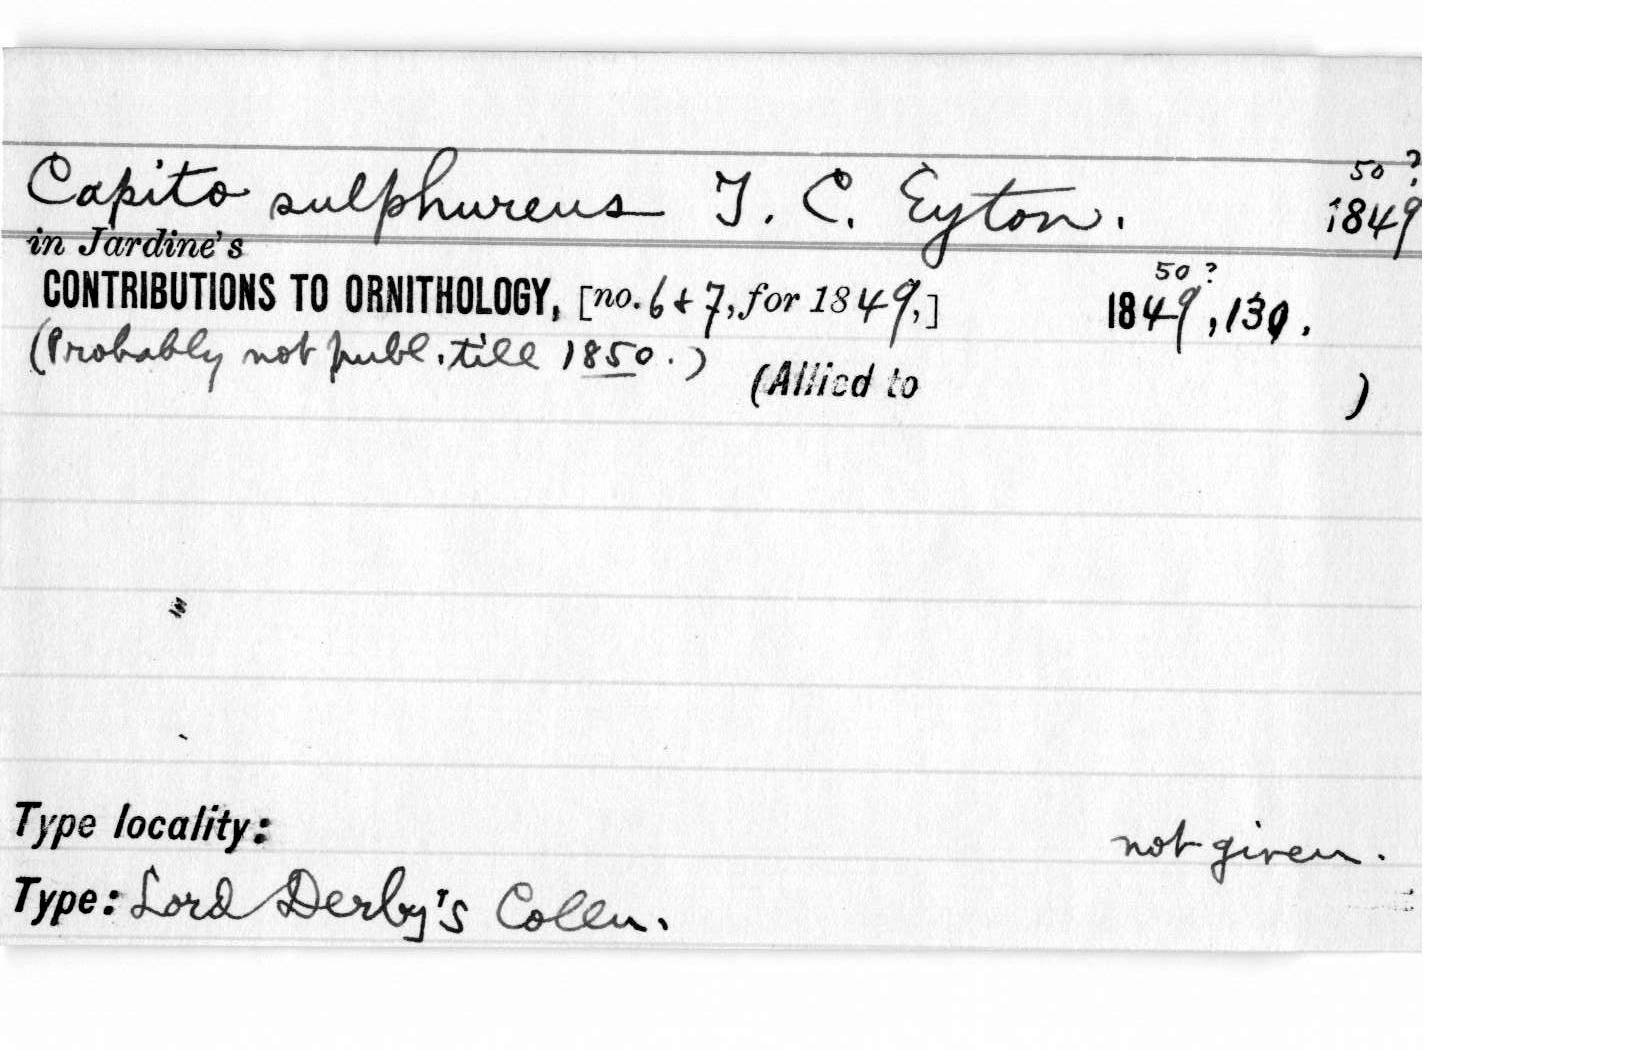 50 ?
Capito sulphureus T. C. Eyton. 1849
in Jardine's
50 ?
CONTRIBUTIONS TO ORNITHOLOGY, [no. 6 + 7, for 1849,] 1849, 130.
(Probably not publ. till 1850.)
(Allied to )
Type locality: not given.
Type: Lord Derby's Colln.